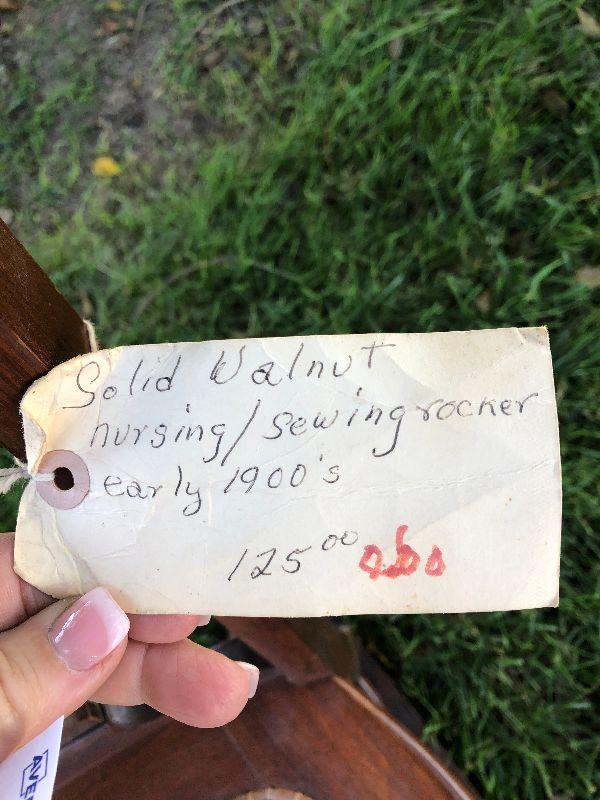 Solid Walnut
nursing/sewing rocker
early 1900's
125.00 obo
AVE